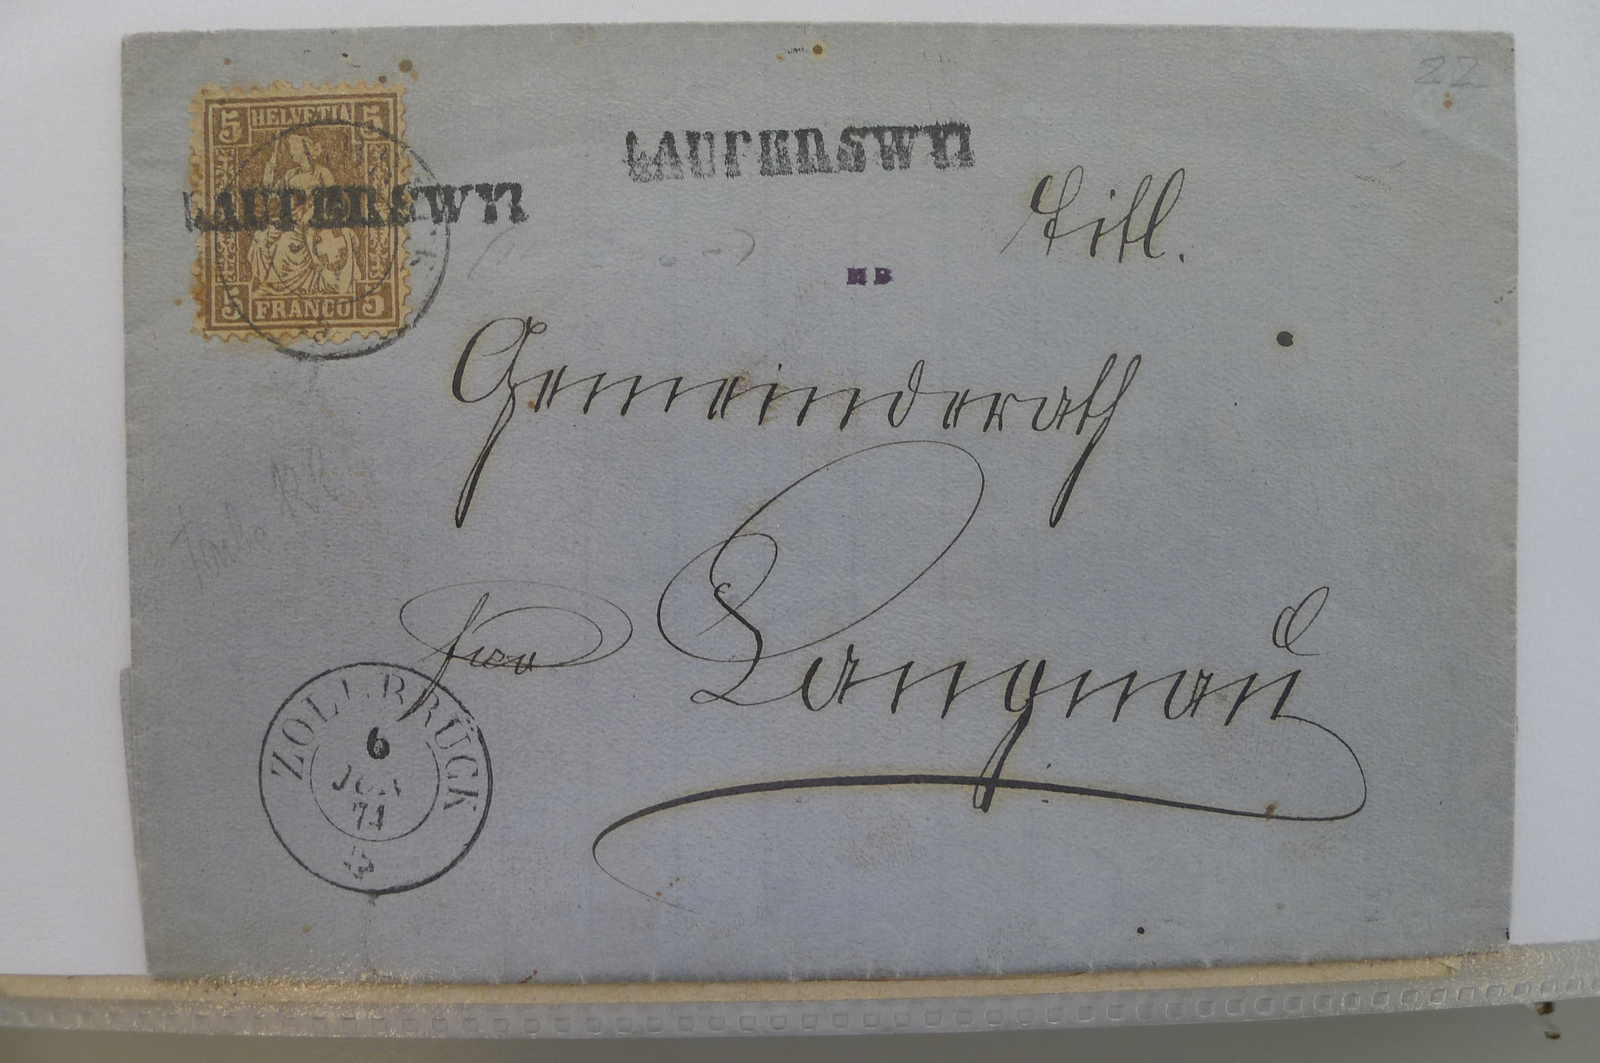 5 HELVETIA 5
5 FRANCO 5
LAUPERSWYL
LAUPERSWYL
22
Titl.
HB
Gemeinderath
Langnau
ZOLLBRÜCK
6
71